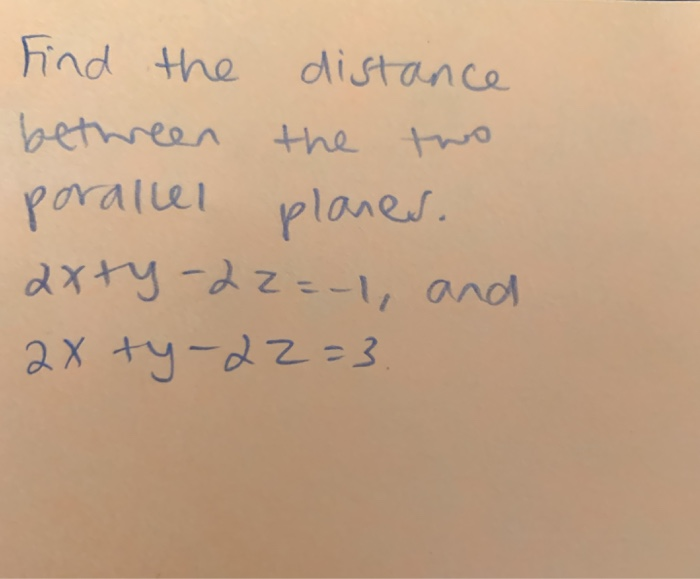 Find the distance
between the two
parallel planes.
2x+y-2z=-1, and
2x+y-2z=3.